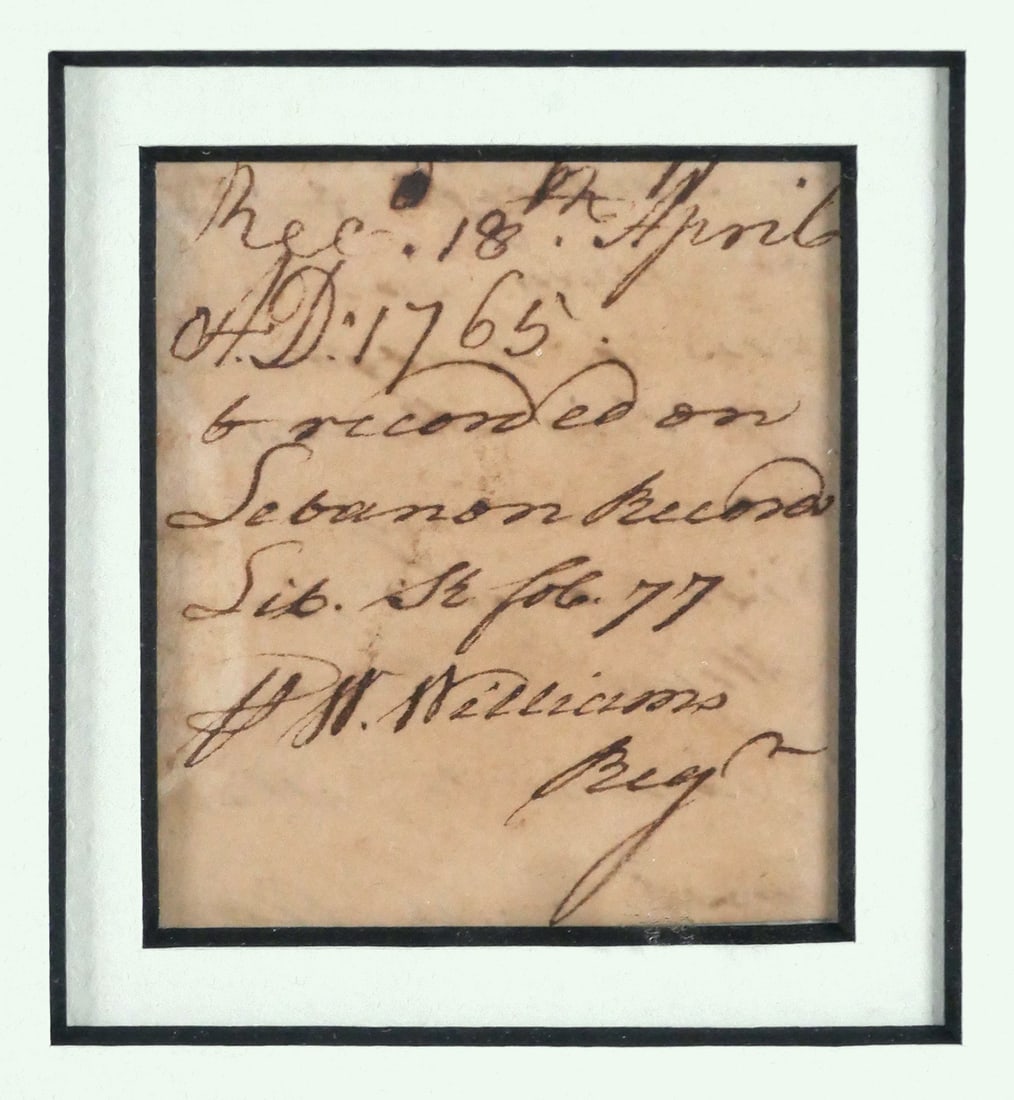 Rec. 18th. April
A.D: 1765.
& recorded on
Lebanon Records
Lib. fol. 77
W. Williams
Regr